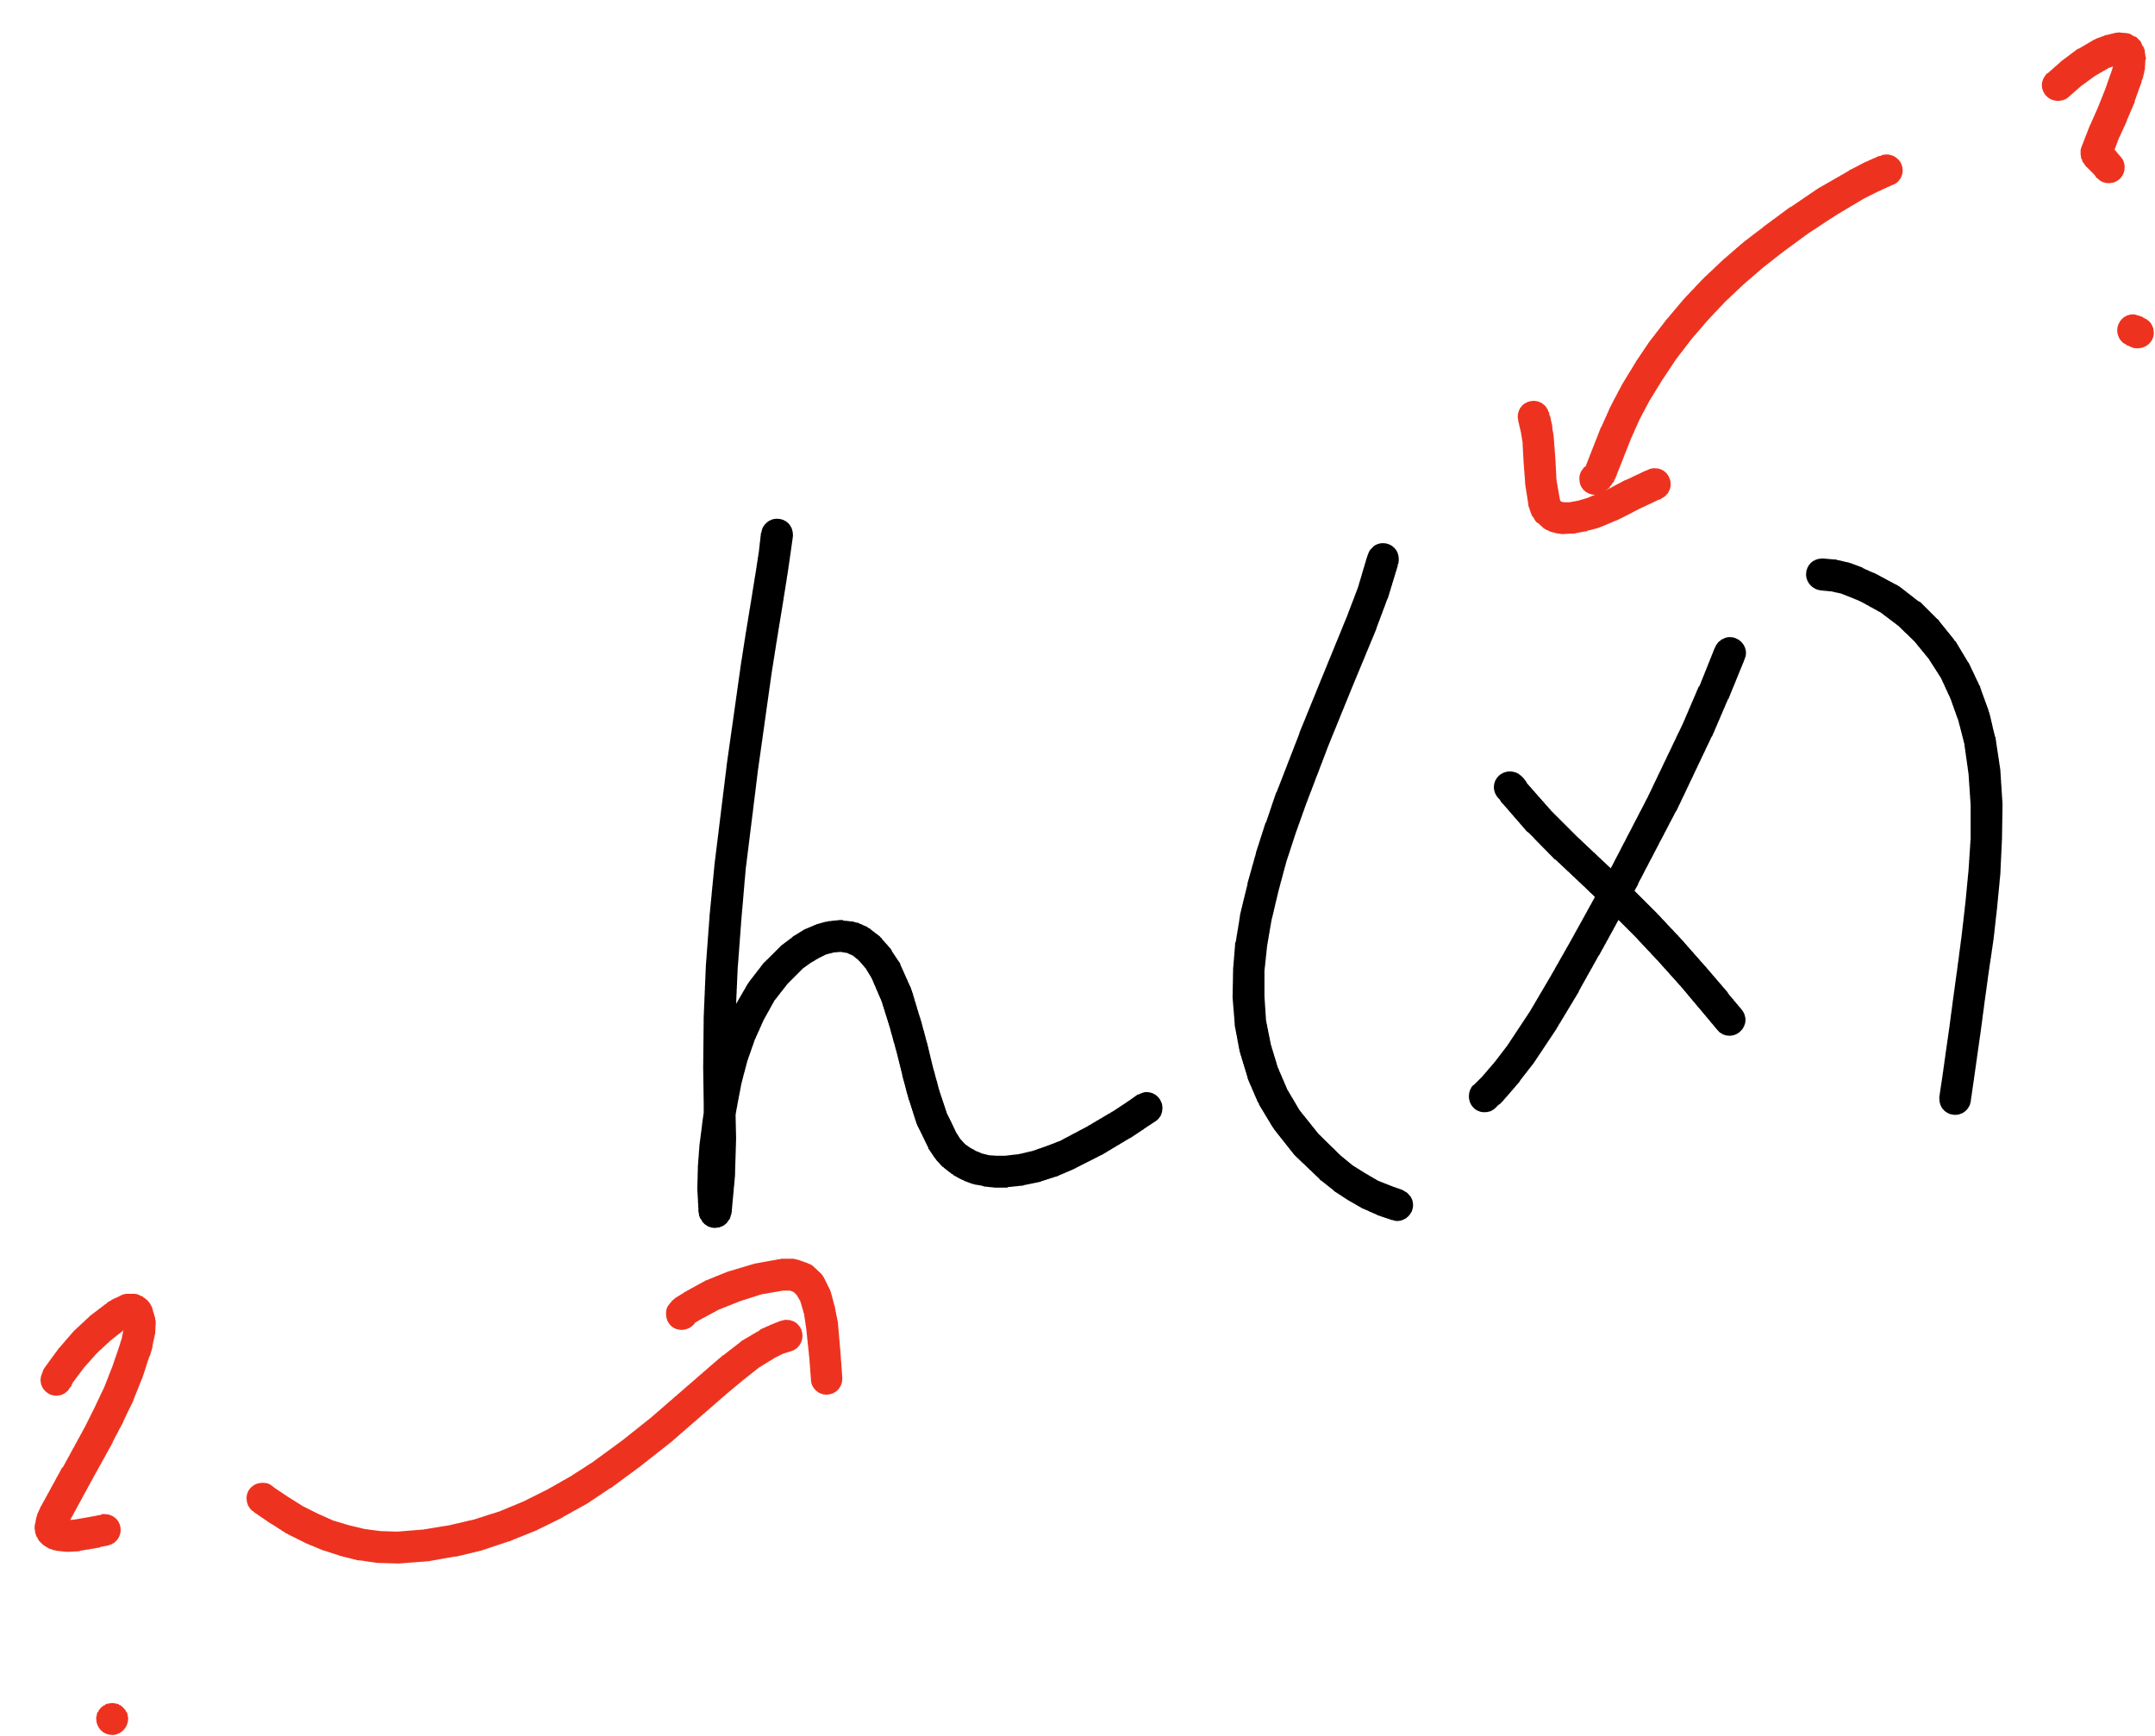 ?
h(x)
?